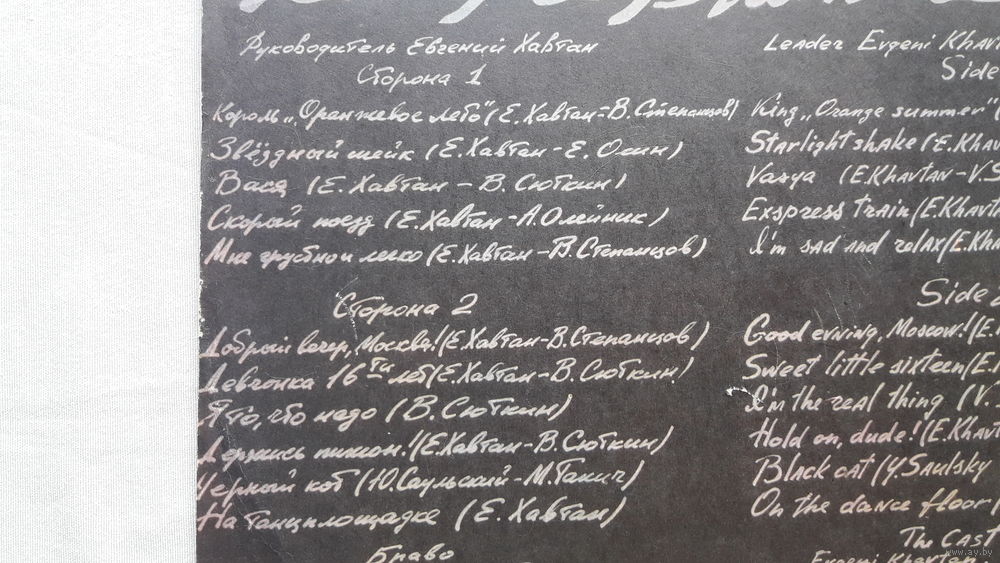 Руководитель Евгений Хавтан
Leader Evgeni Khav
Сторона 1
Side
Король „Оранжевое лето" (Е.Хавтан-В.Степанцов)
King „Orange summer" (
Звёздный шейк (Е.Хавтан-Е.Осин)
Starlight shake (E.Khav
Вася (Е.Хавтан-В.Сюткин)
Vasya (E.Khavtan-V.S
Скорый поезд (Е.Хавтан-А.Олейник)
Exspress train (E.Khavt
Мне грустно и легко (Е.Хавтан-В.Степанцов)
I'm sad and relax (E.Khav
Сторона 2
Side 2
Добрый вечер, Москва! (Е.Хавтан-В.Степанцов)
Good evning, Moscow! (E.
Девчонка 16ти лет (Е.Хавтан-В.Сюткин)
Sweet little sixteen (E.
Я то, что надо (В.Сюткин)
I'm the real thing (V.
Держись пижон! (Е.Хавтан-В.Сюткин)
Hold on, dude! (E.Khavt
Черный кот (Ю.Саульский-М.Танич)
Black cat (Y.Saulsky
На танцплощадке (Е.Хавтан)
On the dance floor (
Браво
The Cast
Evgeni Khavtan.
www.ay.by